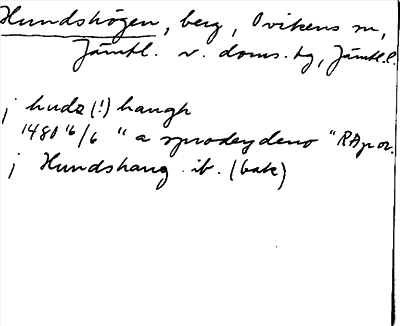 Hundshögen, berg, Ovikens sn,
Jämtl. v. doms. tg, Jämtl. l.
j hudz (!) haugh
1480 16/6 " a sprodeydeno " RAp or.
j Hundshaug ib. (bak)